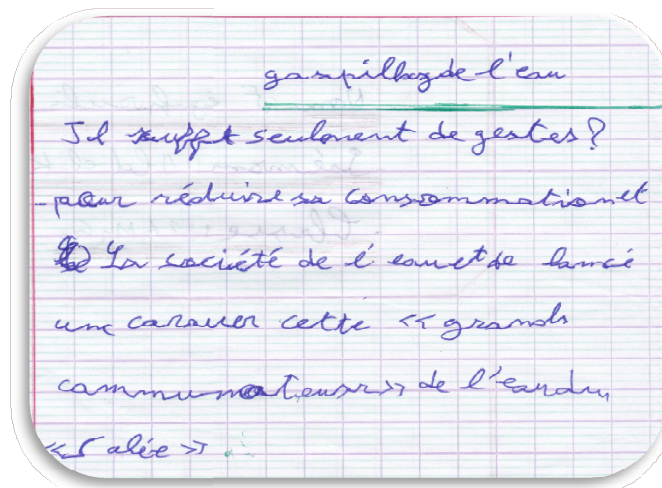 gaspillag de l'eau
Il suffit seulement de gestes ?
pour réduire sa consommation et
La société de l'eau et de lancé
une caraver cette « grands
communicateurs » de l'eau du
« Salée » .